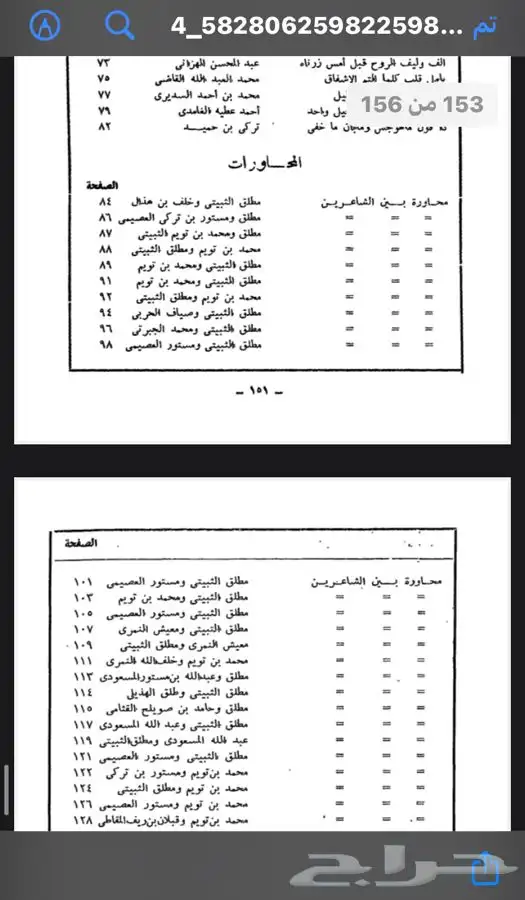 4_582806259822598... تم
الف وليف الروح قبل أمس زرناه عبد المحسن الهزاني ٧٣
محمد العبد الله القاضي ٧٥
محمد بن أحمد السديري ٧٧
أحمد عطيه الغامدي ٧٩
تركي بن حميـــد ٨٢
153 من 156
المحـــاورات
الصفحة
محـاورة بـــين الشاعـريـن مطلق الثبيتى وخلف بن هذال ٨٤
= = = مطلق ومستور بن تركى العصيمى ٨٦
= = = مطلق ومحمد بن تويم الثبيتى ٨٧
= = = محمد بن تويم ومطلق الثبيتى ٨٨
= = = مطلق الثبيتى ومحمد بن تويم ٨٩
= = = مطلق الثبيتى ومحمد بن تويم ٩١
= = = محمد بن تويم ومطلق الثبيتى ٩٢
= = = مطلق الثبيتى وصياف الحربى ٩٤
= = = مطلق الثبيتى ومحمد الجبرتى ٩٦
= = = مطلق الثبيتى ومستور العصيمى ٩٨
– ١٥١ –
الصفحة
محـاورة بـــين الشاعـريـن مطلق الثبيتى ومستور العصيمى ١٠١
= = = مطلق الثبيتى ومحمد بن تويم ١٠٣
= = = مطلق الثبيتى ومستور العصيمى ١٠٥
= = = مطلق الثبيتى ومعيش النمرى ١٠٧
= = = معيش النمرى ومطلق الثبيتى ١٠٩
= = = محمد بن تويم وخلف الله النمرى ١١١
= = = مطلق وعبدالله بن مستور المسعودى ١١٣
= = = مطلق الثبيتى وطلق الهذيل ١١٤
= = = مطلق وحامد بن صويلح القثامى ١١٥
= = = مطلق الثبيتى وعبد الله المسعودى ١١٧
= = = عبد الله المسعودى ومطلق الثبيتى ١١٩
= = = مطلق الثبيتى ومستور العصيمى ١٢١
= = = محمد بن تويم ومستور بن تركى ١٢٢
= = = محمد بن تويم ومطلق الثبيتى ١٢٤
= = = محمد بن تويم ومستور العصيمى ١٢٦
= = = محمد بن تويم وقبلان بن ريف المقاطى ١٢٨
حراج